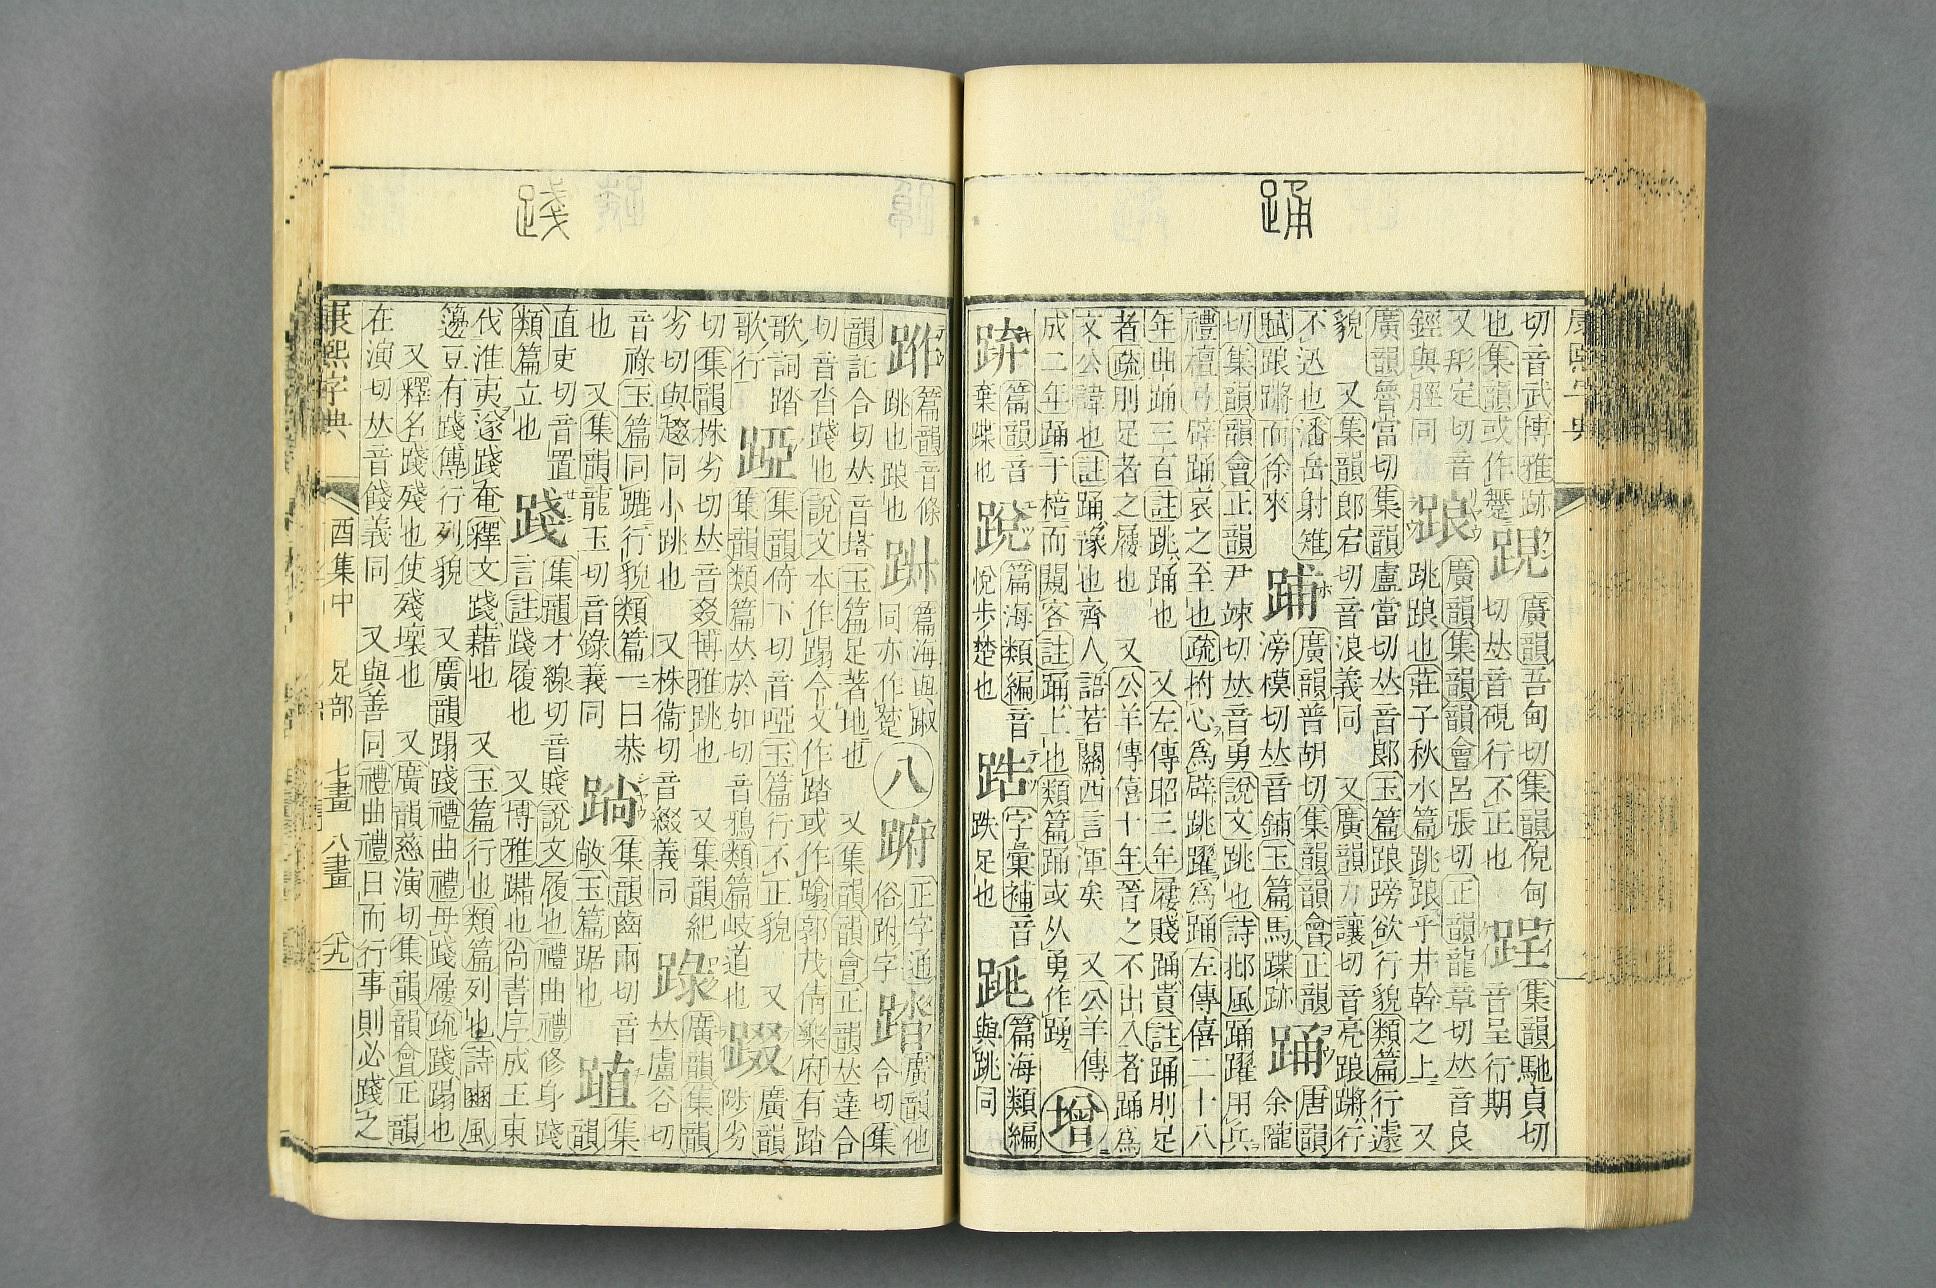 踊
康熙字典
切音武博雅跡
也集韻或作
廣韻吾甸切集韻倪甸
切𠀤音硯行不正也
集韻馳貞切
音呈行期
又形定切音
鋞與脛同
踉
廣韻集韻韻會呂張切正韻龍章切𠀤音良
跳踉也莊子秋水篇跳踉乎井幹之上 又
廣韻魯當切集韻盧當切𠀤音郎玉篇踉蹡欲行貌類篇行遽
貌 又集韻郎宕切音浪義同 又廣韻力讓切音亮踉蹡行
不迅也潘岳射雉
賦踉蹡而徐來
廣韻普胡切集韻韻會正韻
滂模切𠀤音鋪玉篇馬蹀跡
踊
唐韻
余隴
切集韻韻會正韻尹竦切𠀤音勇說文跳也詩邶風踊躍用兵
禮檀弓辟踊哀之至也疏拊心爲辟跳躍爲踊左傳僖二十八
年曲踊三百註跳踊也 又左傳昭三年屨賤踊貴註踊刖足
者疏刖足者之屨也 又公羊傳僖十年晉之不出入者踊爲
文公諱也註踊豫也齊人語若關西言渾矣 又公羊傳
成二年踊于棓而闚客註踊上也類篇踊或从勇作踴
增
篇韻音
棄蹀也
篇海類編音
悅步楚也
字彙補音
跌足也
篇海類編
與跳同
踐
篇韻音條
跳也踉也
篇海與踧
同亦作
八
腑
正字通
俗跗字
踏
廣韻他
合切集
韻託合切𠀤音塔玉篇足著地也 又集韻韻會正韻𠀤達合
切音沓踐也說文本作蹋今文作踏或作 郭茂倩樂府有踏
歌詞踏
歌行
踂
集韻倚下切音啞玉篇行不正貌 又
集韻類篇𠀤於加切音鴉類篇岐道也
踿
廣韻
陟劣
切集韻株劣切𠀤音叕博雅跳也 又集韻紀
劣切與趨同小跳也 又株衞切音綴義同
廣韻集韻
𠀤盧谷切
音祿玉篇同 行貌類篇一曰恭
也 又集韻龍玉切音錄義同
集韻齒兩切音
敞玉篇踞也
集
韻
直吏切音置
類篇立也
踐
集韻才線切音賤說文履也禮曲禮修身踐
言註踐履也 又博雅蹋也尚書序成王東
伐淮夷遂踐奄釋文踐藉也 又玉篇行也類篇列也詩豳風
籩豆有踐傳行列貌 又廣韻蹋踐禮曲禮毋踐屨疏踐蹋也
又釋名踐殘也使殘壞也 又廣韻慈演切集韻韻會正韻
在演切𠀤音餞義同 又與善同禮曲禮曰而行事則必踐之
康熙字典
酉集中 足部 七畫 八畫
九